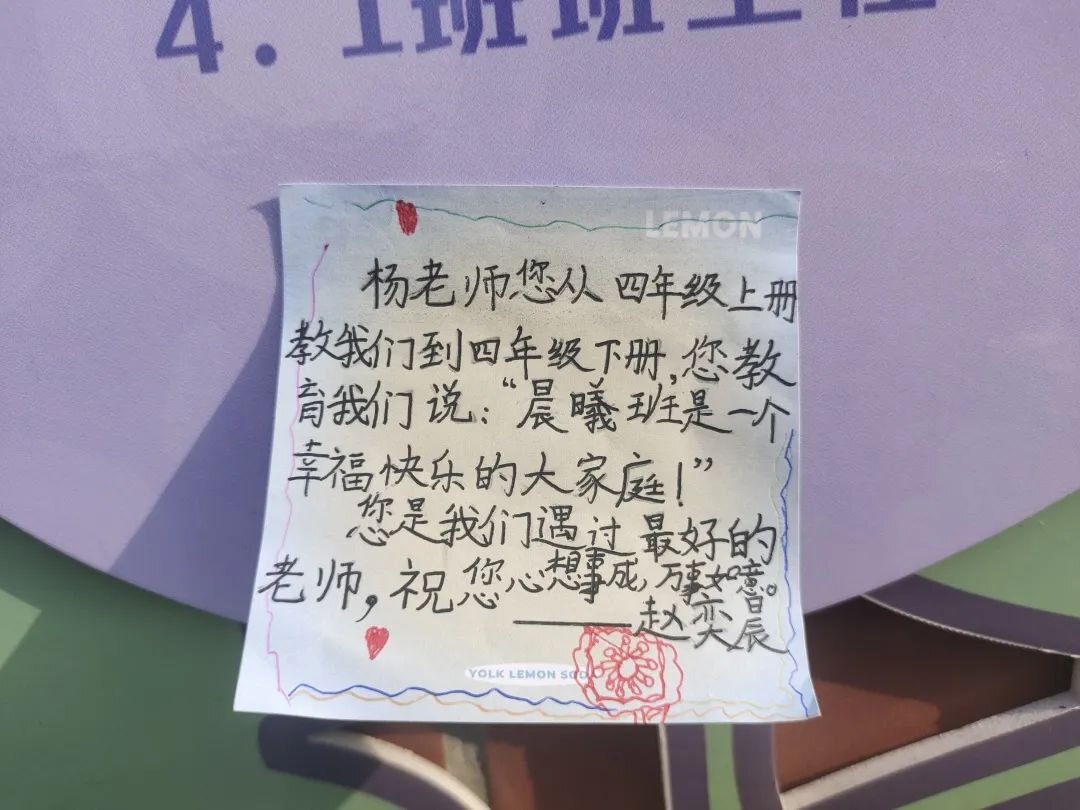 4.1班班主任
LEMON
杨老师您从四年级上册
教我们到四年级下册,您教
育我们说:“晨曦班是一个
幸福快乐的大家庭!”
您是我们遇过最好的
老师,祝您心想事成,万事如意。
——赵奕晨
YOLK LEMON SOD